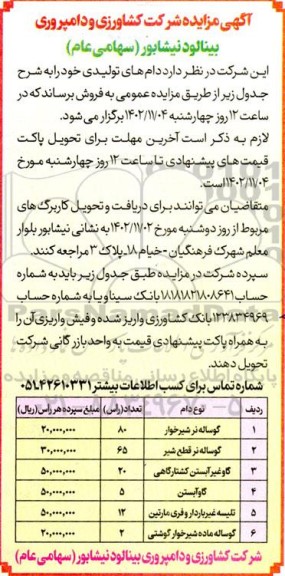 آگهی مزایده شرکت کشاورزی و دامپروری
بینالود نیشابور (سهامی عام)
این شرکت در نظر دارد دام های تولیدی خود را به شرح
جدول زیر از طریق مزایده عمومی به فروش برساند که در
ساعت ۱۲ روز چهارشنبه ۱۴۰۲/۱۱/۰۴ برگزار می شود.
لازم به ذکر است آخرین مهلت برای تحویل پاکت
قیمت های پیشنهادی تا ساعت ۱۲ روز چهارشنبه مورخ
۱۴۰۲/۱۱/۰۴ است.
متقاضیان می توانند برای دریافت و تحویل کاربرگ های
مربوط از روز دوشنبه مورخ ۱۴۰۲/۱۱/۰۲ به نشانی نیشابور بلوار
معلم شهرک فرهنگیان -خیام ۱۸_ پلاک ۳ مراجعه کنند.
سپرده شرکت در مزایده طبق جدول زیر باید به شماره
حساب ۱۸۱۸۱۸۲۱۸۰۸۶۴۱ بانک سینا و یا به شماره حساب
۱۲۲۸۳۴۹۶۹ بانک کشاورزی واریز شده و فیش واریزی آن را
به همراه پاکت پیشنهادی قیمت به واحد بازرگانی شرکت
تحویل دهند.
شماره تماس برای کسب اطلاعات بیشتر ۰۵۱۴۲۶۱۰۳۳۱
ردیف نوع دام تعداد(راس) مبلغ سپرده هر راس(ریال)
۱ گوساله نر شیرخوار ۸۰ ۲۰,۰۰۰,۰۰۰
۲ گوساله نر قطع شیر ۶۵ ۳۰,۰۰۰,۰۰۰
۳ گاو غیر آبستن کشتارگاهی ۲۰ ۵۰,۰۰۰,۰۰۰
۴ گاو آبستن ۵ ۵۰,۰۰۰,۰۰۰
۵ تلیسه غیر باردار و فری مارتین ۱۲ ۵۰,۰۰۰,۰۰۰
۶ گوساله ماده شیرخوار گوشتی ۲ ۲۰,۰۰۰,۰۰۰
شرکت کشاورزی و دامپروری بینالود نیشابور (سهامی عام)